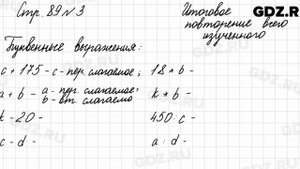 Стр. 89 № 3
Итоговое
повторение всего
изученного
GDZ.RU
Буквенные выражения:
c + 175 - c - пер. слагаемое;
a + b - a - пер. слагаемое;
b - вт. слагаемо
k - 20 -
c - d -
18 * b -
k * b -
450 : c -
a : d -